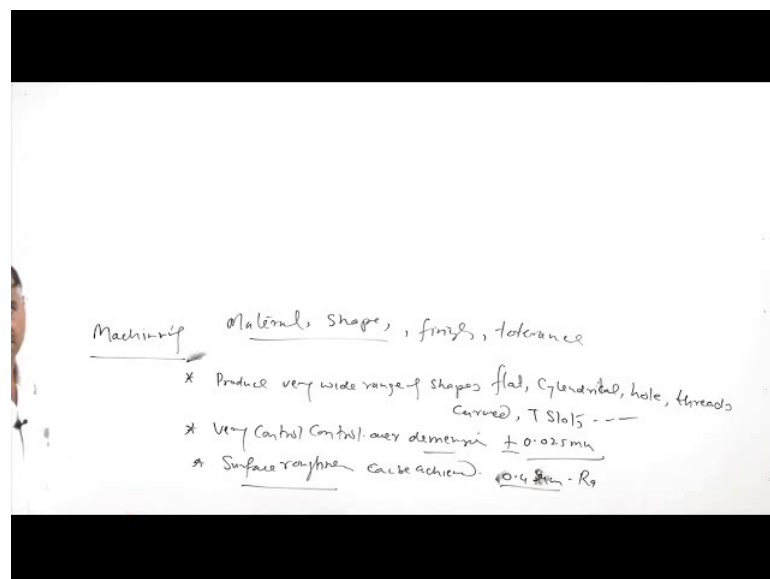 Machining Material, shape, , finish, tolerance
* Produce very wide range of shapes flat, Cylendrical, hole, threads
Curved, T Slots ----
* Very Control Control over demension ± 0.025mm
* Surface roughness can be achieved. 0.4 - Ra